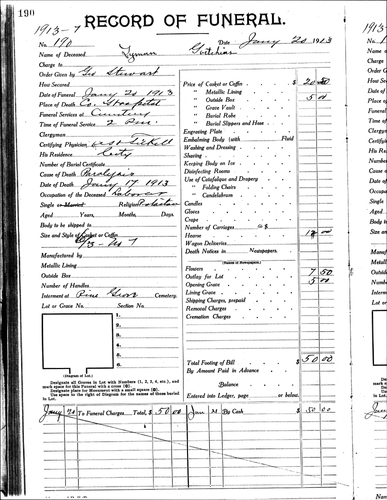 190
1913-7
RECORD OF FUNERAL.
No. 190 Date Jany 20 1913
Name of Deceased Lyman
Charge to
Order Given by Geo Stewart
How Secured
Date of Funeral Jany 20 1913
Place of Death Co. Hospital
Funeral Services at Cemetery
Time of Funeral Service 2 P.M.
Clergyman
Certifying Physician
His Residence City
Number of Burial Certificate
Cause of Death Paralysis
Date of Death Jany 17 1913
Occupation of the Deceased Laborer
Single or Married Religion
Aged Years, Months, Days.
Body to be shipped to
Size and Style of Casket or Coffin
Manufactured by
Metallic Lining
Outside Box
Number of Handles
Interment at Pine Grove Cemetery.
Lot or Grave No. Section No.
1.
2.
3.
4.
5.
6.
(Diagram of Lot.)
Designate all Graves in Lot with Numbers (1, 2, 3, 4, etc.), and
mark space for this Funeral with a cross
Designate place for Monument with a small square
Use space to the right of Diagram for the names of those buried
in Lot.
Price of Casket or Coffin $ 20 00
" Metallic Lining
" Outside Box 5 00
" Grave Vault
" Burial Robe
" Burial Slippers and Hose
Engraving Plate
Embalming Body (with Fluid
Washing and Dressing
Shaving
Keeping Body on Ice
Disinfecting Rooms
Use of Catafalque and Drapery
" Folding Chairs
" Candelabrum
Candles
Gloves
Crape
Number of Carriages @ $
Hearse
Wagon Deliveries
Death Notices in Newspapers
(Names of Newspapers)
Flowers 7 50
Outlay for Lot
Opening Grave 5 00
Lining Grave
Shipping Charges, prepaid
Removal Charges
Cremation Charges
Total Footing of Bill $ 50 00
By Amount Paid in Advance
Balance
Entered into Ledger, page or below.
Jany 20 To Funeral Charges Total, $ 50 00 Jan 21 By Cash $ 50 00